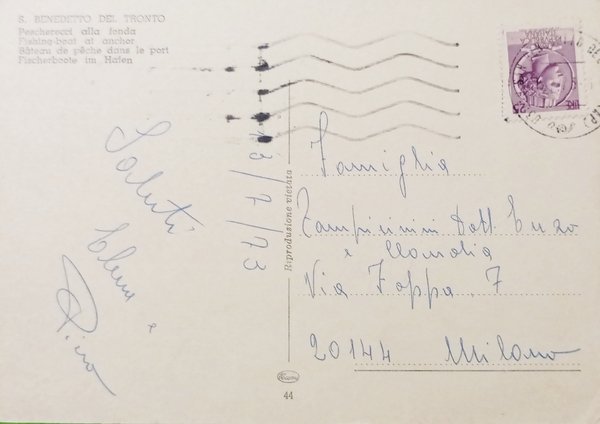 S. BENEDETTO DEL TRONTO
Pescherecci alla fonda
Fishing-boat at anchor
Bâteau de pêche dans le port
Fischerboote im Hafen
Saluti
Elena e
Pino
13/7/73
Riproduzione vietata
Famiglia
Dott. Enzo
e Claudia
Via Foppa, 7
20144 Milano
44